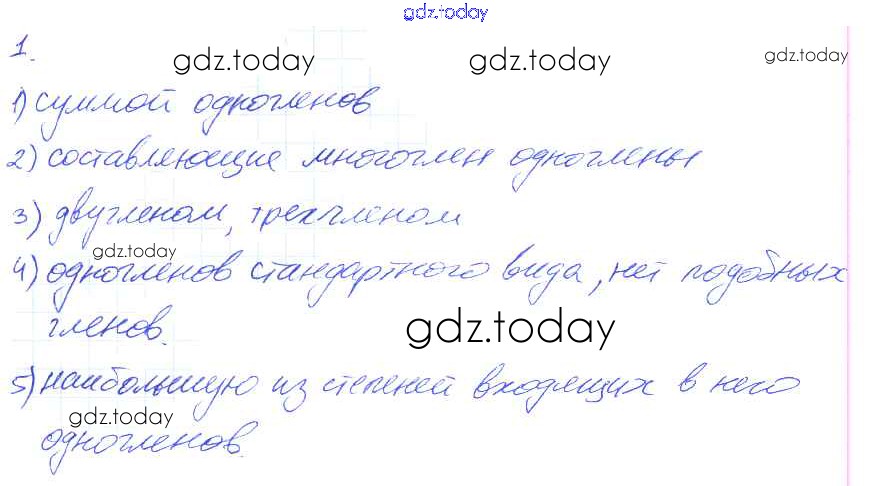 gdz.today
1.
gdz.today gdz.today gdz.today
1) суммой одночленов
2) составляющие многочлен одночлены
3) двучленом, трехчленом
gdz.today
4) одночленов стандартного вида, нет подобных
членов.
gdz.today
5) наибольшую из степеней входящих в него
gdz.today
одночленов.